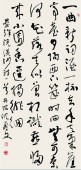 一曲新詞酒一杯去年天氣
舊亭臺夕陽西下幾時回無
可奈何花落去似曾相識燕歸
來小園香徑獨徘徊
晏殊浣溪沙